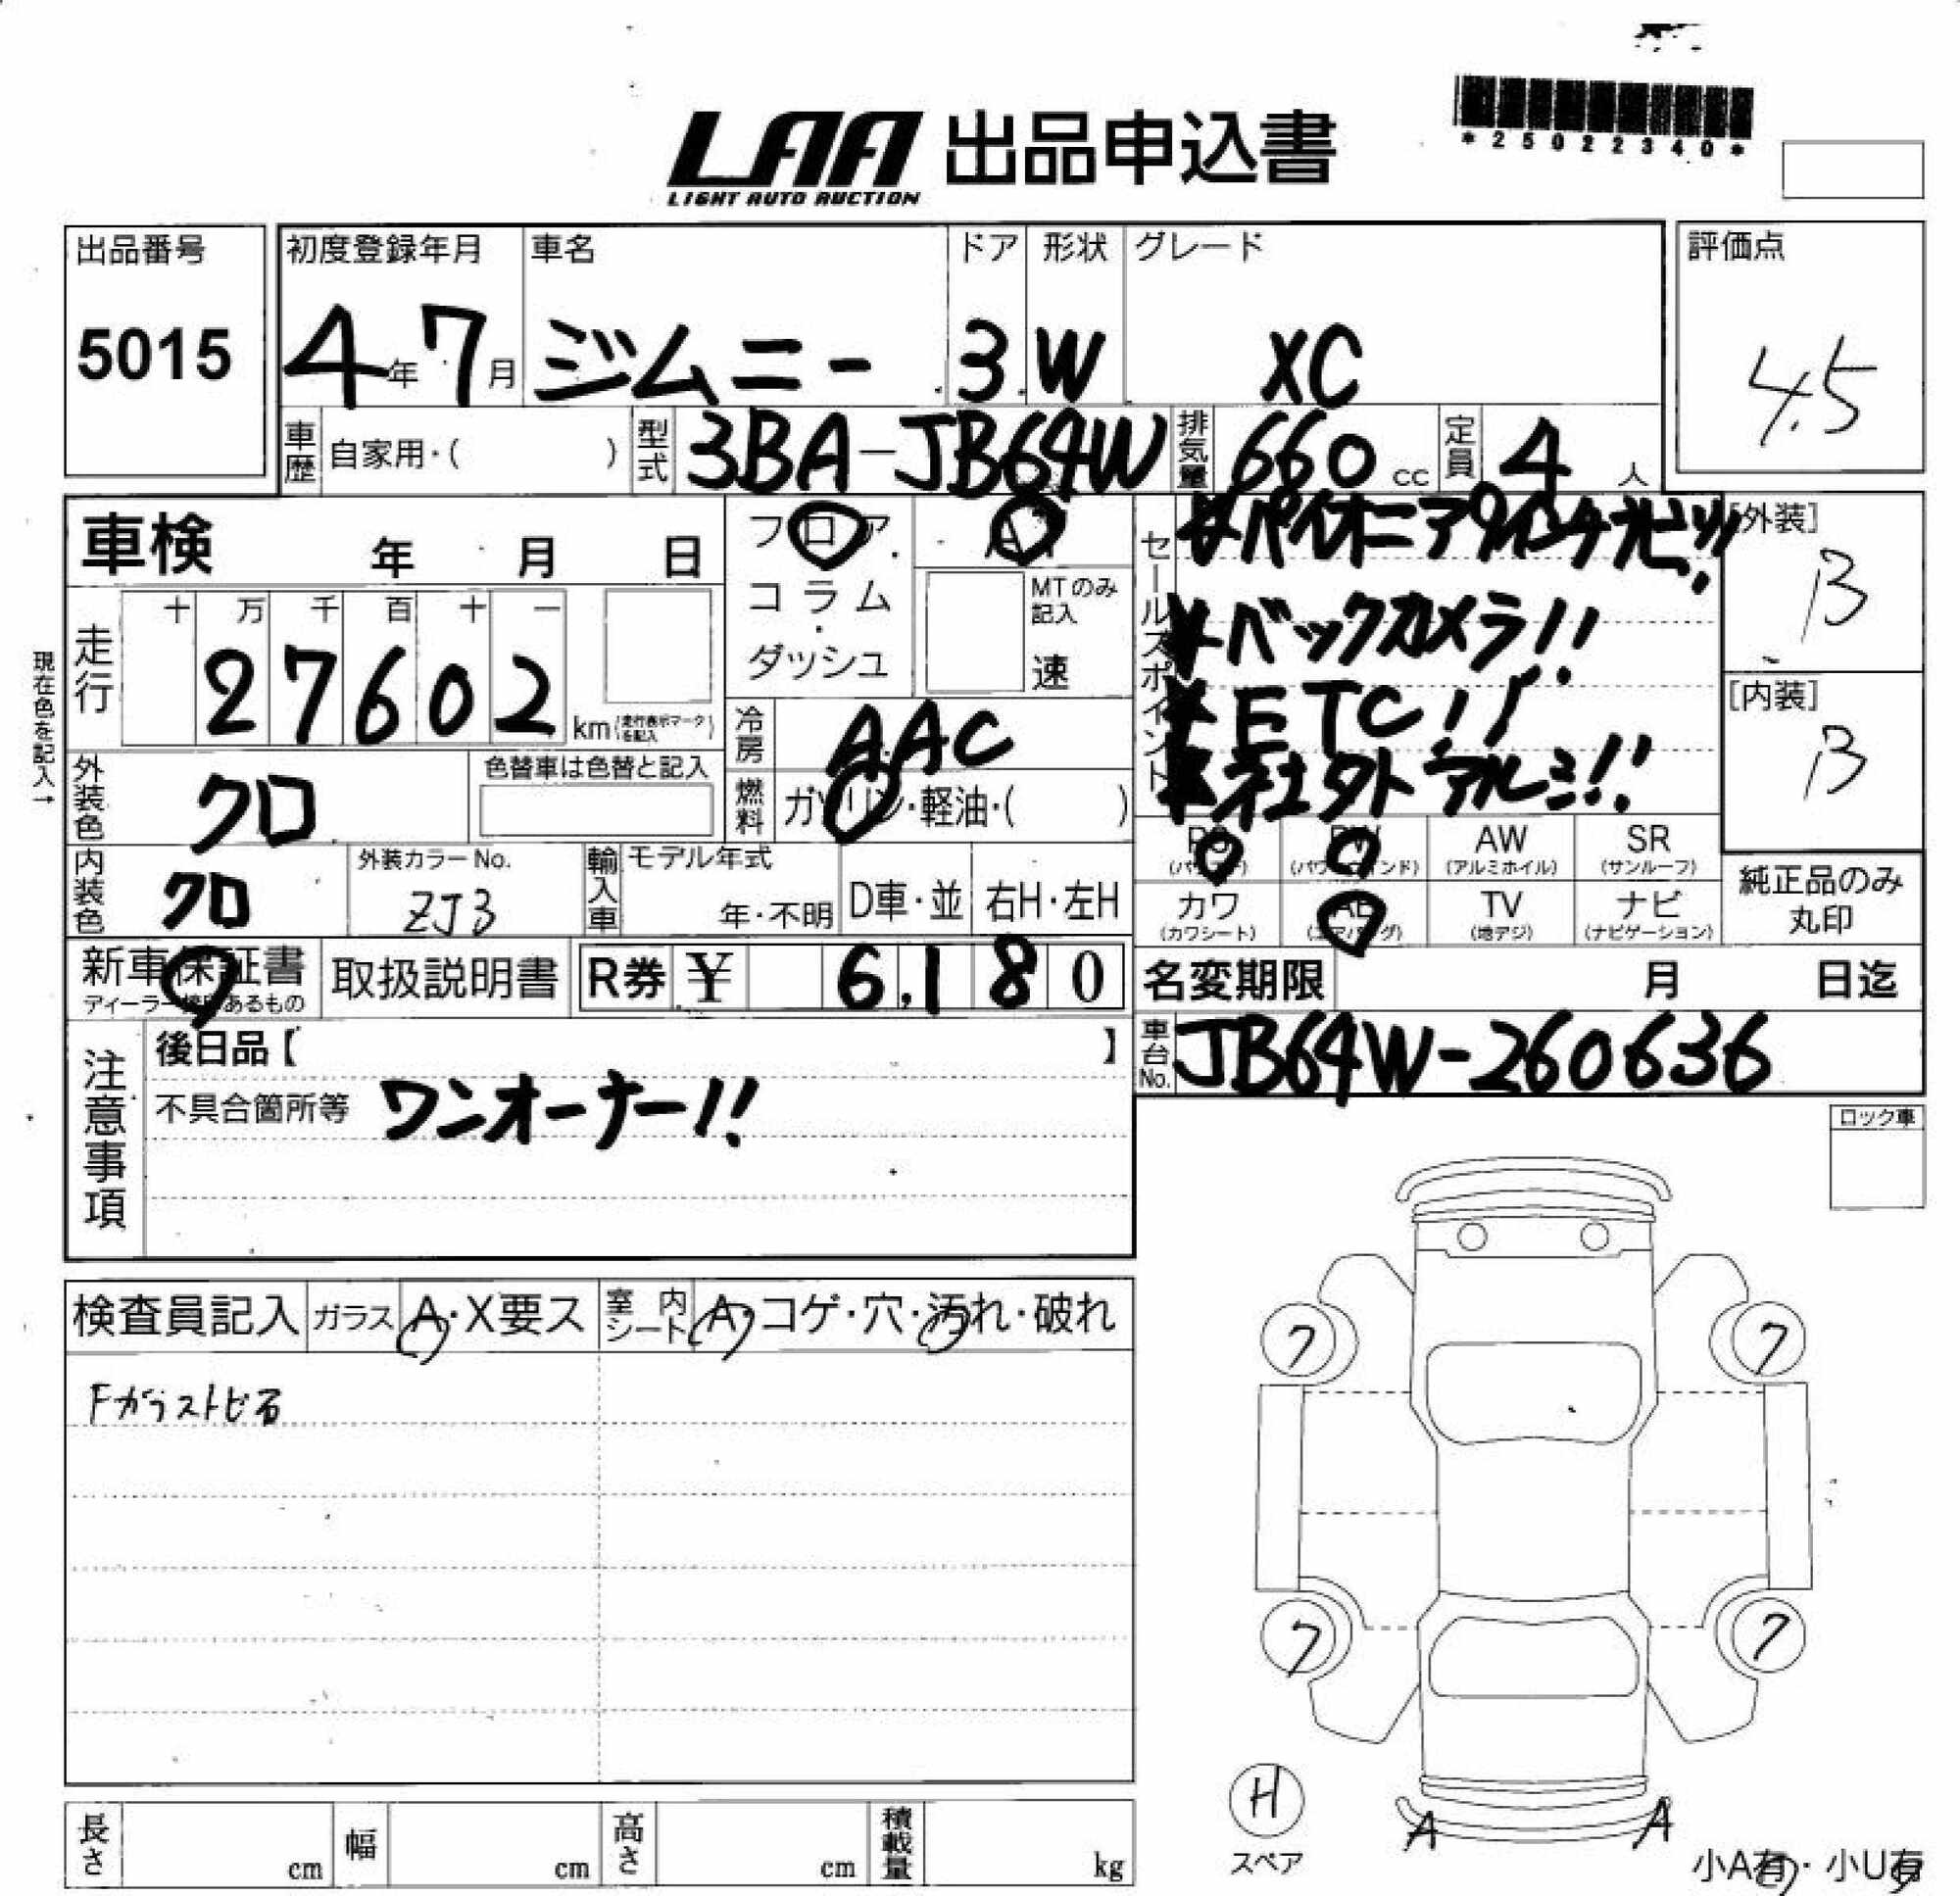 LAA 出品申込書
LIGHT AUTO AUCTION
*25022340*
出品番号 5015
初度登録年月 4年7月
車名 ジムニー
ドア 3
形状 W
グレード XC
評価点 4.5
車歴 自家用・( )
型式 3BA-JB64W
排気量 660 cc
定員 4 人
車検 年 月 日
フロア・コラム・ダッシュ
AT
MTのみ記入 速
セールスポイント
バックカメラ!!
ETC!!
社外アルミ!!
[外装] B
[内装] B
現在色を記入→
走行 十 万 千 百 十 一
27602 km (走行表示マークを記入)
冷房 AAC
燃料 ガソリン・軽油・( )
外装色 クロ
色替車は色替と記入
内装色 クロ
外装カラーNo. ZJ3
輸入車 モデル年式 年・不明
D車・並
右H・左H
PS (パワステ)
PW (パワーウインド)
AW (アルミホイル)
SR (サンルーフ)
カワ (カワシート)
AB (エアバッグ)
TV (地デジ)
ナビ (ナビゲーション)
純正品のみ丸印
新車保証書
取扱説明書
R券 ¥ 6,180
名変期限 月 日迄
車台No. JB64W-260636
注意事項
後日品【 】
不具合箇所等 ワンオーナー!!
ロック車
検査員記入 ガラス A・X要ス 室内シート A・コゲ・穴・汚れ・破れ
Fガラストビ石
7 7
7 7
H
スペア
A A
小A有・小U有
長さ cm 幅 cm 高さ cm 積載量 kg